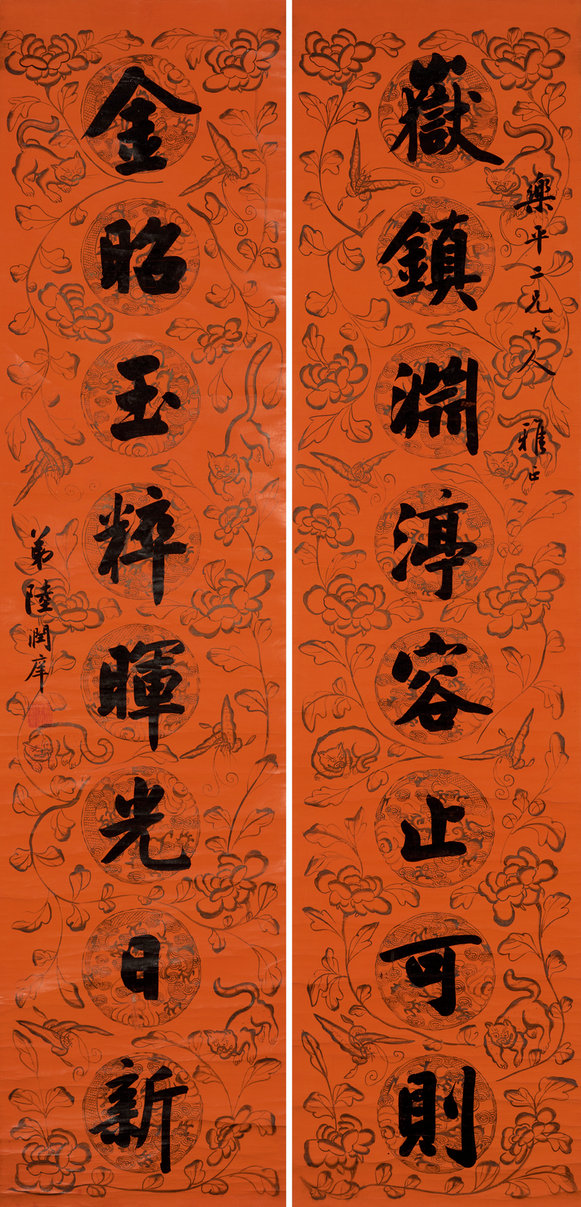 嶽鎮淵渟容止可則
樂平二兄大人 雅正
金昭玉粹暉光日新
弟陸潤庠